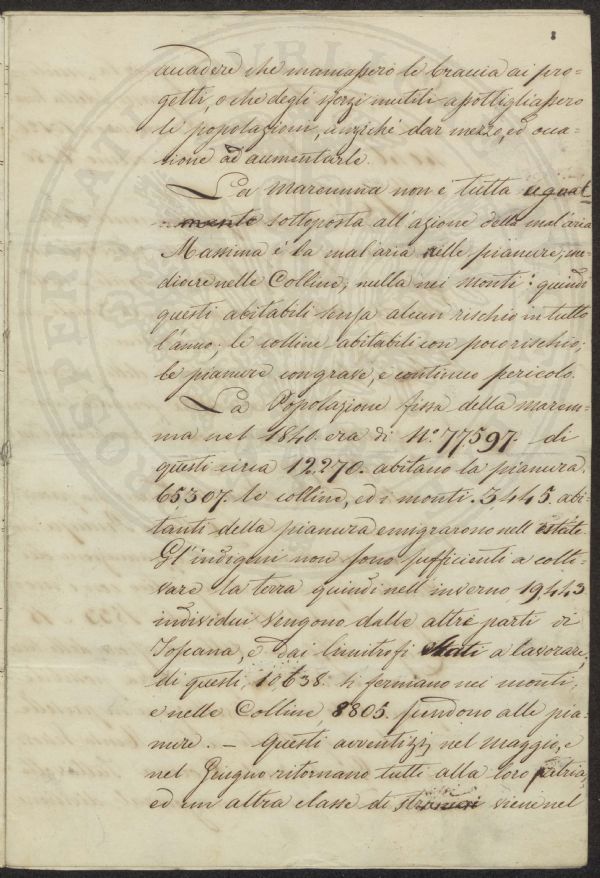 accadere che mancassero le braccia ai pro=
getti, o che degli sforzi inutili assottigliassero
le popolazioni, anziché dar mezzo, ed occa=
sione ad aumentarle.
La Maremma non è tutta egual=
mente sottoposta all'azione della mal'aria
Massima è la mal'aria nelle pianure, me=
diocre nelle Colline, nulla nei monti: quindi
questi abitabili senza alcun rischio in tutto
l'anno; le colline abitabili con poco rischio;
le pianure con grave, e continuo pericolo.
La Popolazione fissa della marem=
ma nel 1840. era di N.º 77597. di
questi circa 12.270. abitano la pianura
65307. le colline, ed i monti. 3445. abi=
tanti della pianura emigrarono nell'estate
Gl'indigeni non sono sufficienti a colti=
vare la terra quindi nell'inverno 19443
individui vengono dalle altre parti di
Toscana, e dai limitrofi Stati a lavorare;
di questi, 10638. si fermano nei monti,
e nelle Colline, 8805. scendono alle pia=
nure. – Questi avventizj nel Maggio, e
nel Giugno ritornano tutti alla loro patria,
ed un altra classe di stranieri viene nel